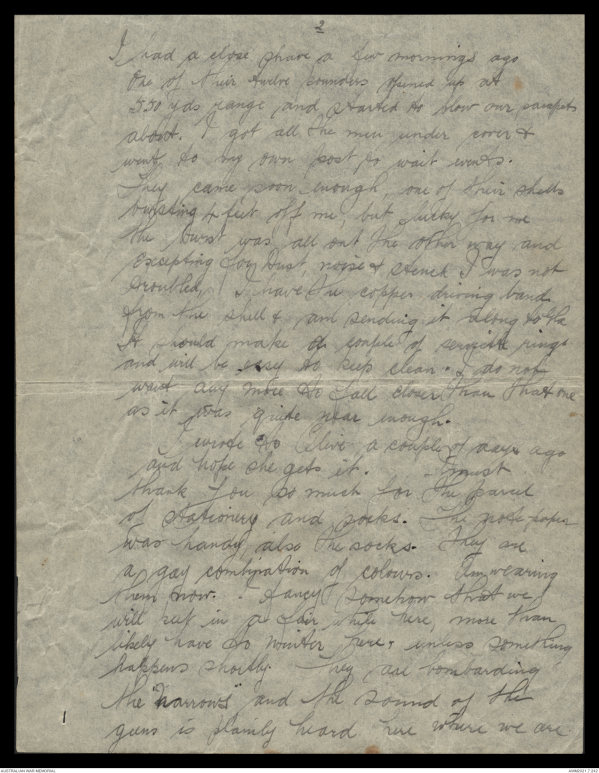 2
I had a close shave a few mornings ago
One of their twelve pounders opened up at
550 yds range and started to blow our parapets
about. I got all the men under cover &
went to my own post to wait events.
They came soon enough, one of their shells
bursting 4 feet off me, but lucky for me
the burst was all out the other way and
excepting for dust, noise & stench I was not
troubled, I have the copper driving band
from the shell & am sending it along to
It should make a couple of serviette rings
and will be easy to keep clean. I do not
want any more to fall closer than that one
as it was quite near enough.
I wrote to Olive a couple of days ago
and hope she gets it. I must
thank you so much for the parcel
of stationery and socks. The note paper
was handy also the socks. They are
a gay combination of colours. Am wearing
them now. Fancy somehow that we
will put in a fair while here more than
likely have to winter here, unless something
happens shortly. They are bombarding
the "narrows" and the sound of the
guns is plainly heard here where we are
AUSTRALIAN WAR MEMORIAL